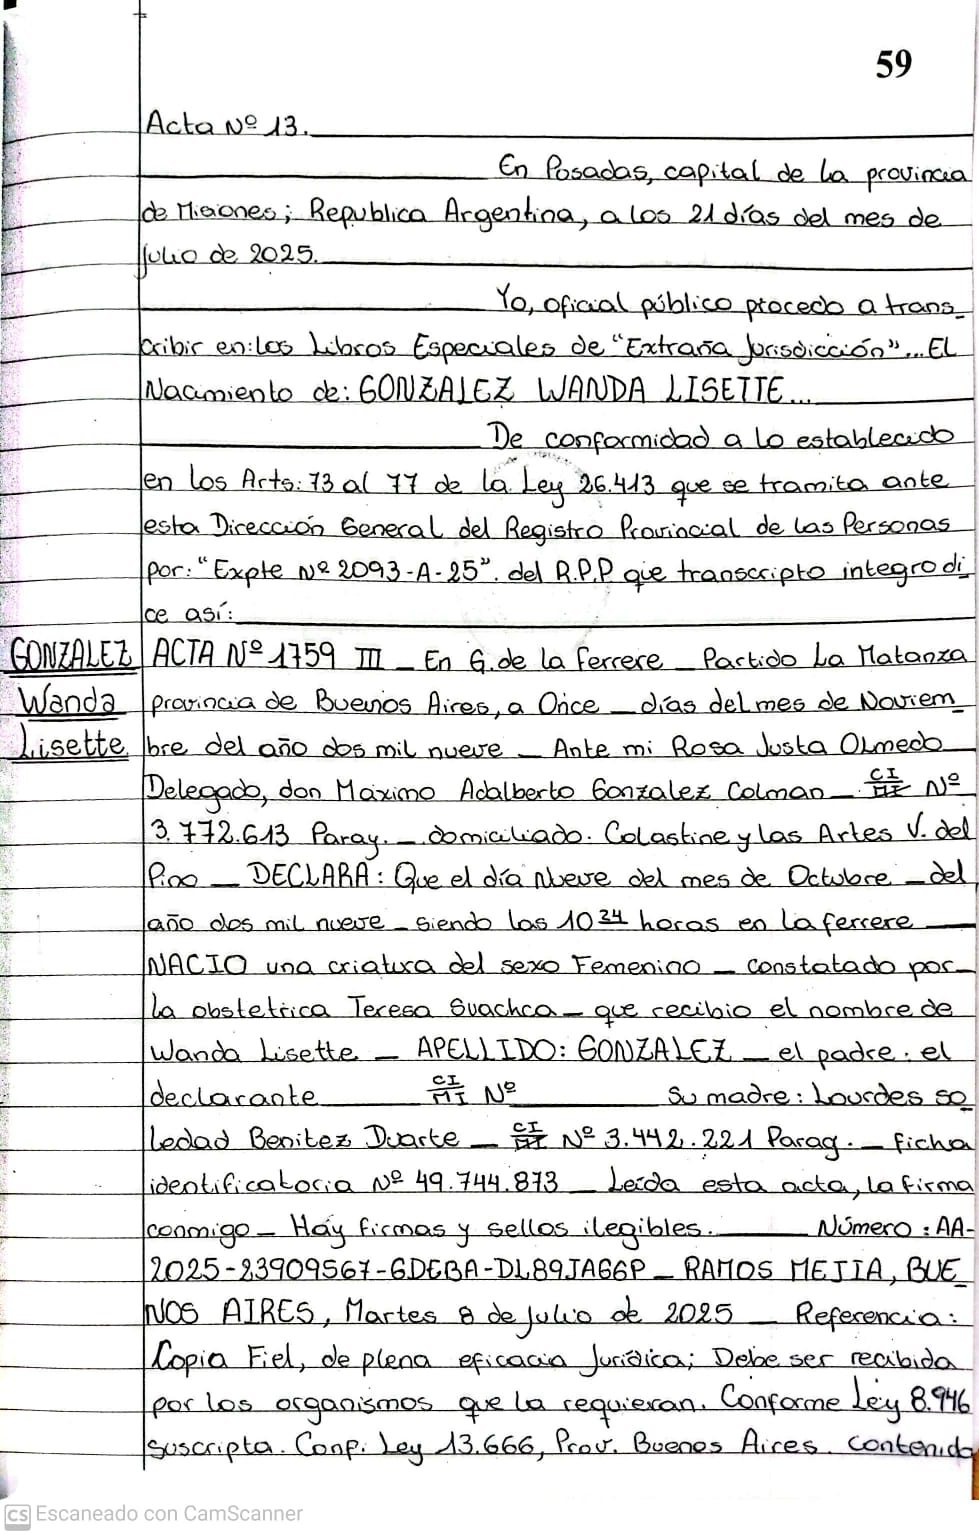 59
Acta Nº 13.
En Posadas, capital de la provincia
de Misiones; Republica Argentina, a los 21 días del mes de
julio de 2025.
Yo, oficial público procedo a trans_
cribir en: los Libros Especiales de "Extraña Jurisdicción"... El
Nacimiento de: GONZALEZ WANDA LISETTE...
De conformidad a lo establecido
en los Arts: 73 al 77 de la Ley 26.413 que se tramita ante
esta Dirección General del Registro Provincial de las Personas
por: "Expte Nº 2093-A-25". del R.P.P que transcripto integro di
ce así:
GONZALEZ ACTA Nº 1759 III _ En G. de la Ferrere _ Partido La Matanza
Wanda provincia de Buenos Aires, a Once _ días del mes de Noviem_
Lisette bre del año dos mil nueve _ Ante mi Rosa Justa Olmedo
Delegado, don Maximo Adalberto Gonzalez Colman _ CI Nº
3.772.613 Paray. _ domiciliado. Colastine y las Artes V. del
Pino _ DECLARA: Que el día Nueve del mes de Octubre _ del
año dos mil nueve _ siendo las 10 34 horas en la ferrere
NACIO una criatura del sexo Femenino _ constatado por_
la obstetrica Teresa _ que recibio el nombre de
Wanda Lisette _ APELLIDO: GONZALEZ _ el padre. el
declarante CI MI Nº Su madre: Lourdes so
ledad Benitez Duarte _ CI Nº 3.442.221 Parag. _ ficha
identificatoria Nº 49.744.873 _ Leída esta acta, la firma
conmigo _ Hay firmas y sellos ilegibles. Número: AA-
2025-23909567-GDEBA-DL89JAGGP _ RAMOS MEJIA, BUE_
NOS AIRES, Martes 8 de Julio de 2025 _ Referencia:
Copia Fiel, de plena eficacia Jurídica; Debe ser recibida
por los organismos que la requieran. Conforme Ley 8.946
suscripta. Conf. Ley 13.666, Prov. Buenos Aires. contenido
CS Escaneado con CamScanner